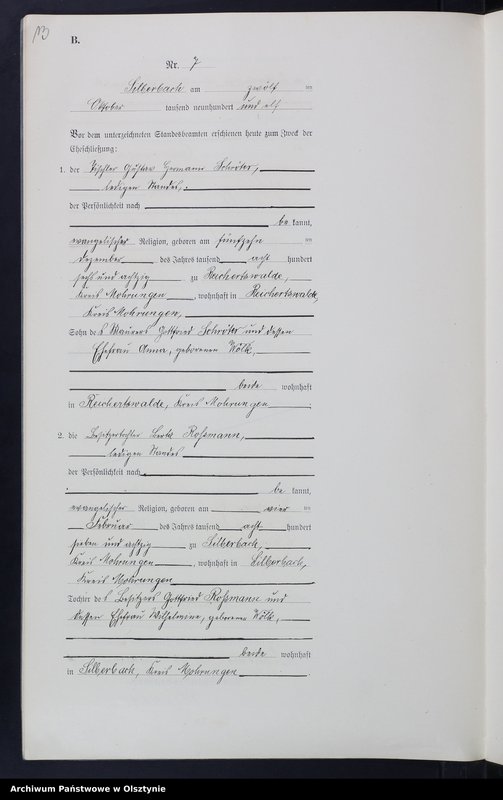 13
B.
Nr. 7
Silberbach am zwölf ten
Oktober tausend neunhundert und elf
Vor dem unterzeichneten Standesbeamten erschienen heute zum Zweck der
Eheschließung:
1. der Tischler Gustav Hermann Schröter,
ledigen Standes,
der Persönlichkeit nach
be kannt,
evangelischer Religion, geboren am fünfzehn ten
Dezember des Jahres tausend acht hundert
sechs und achtzig zu Reichertswalde,
Kreis Mohrungen, wohnhaft in Reichertswalde,
Kreis Mohrungen,
Sohn des Maurers Gottfried Schröter und dessen
Ehefrau Anna, geborenen Wölk,
beide wohnhaft
in Reichertswalde, Kreis Mohrungen.
2. die Besitzertochter Berta Roßmann,
ledigen Standes
der Persönlichkeit nach
be kannt,
evangelischer Religion, geboren am vier ten
Februar des Jahres tausend acht hundert
sieben und achtzig zu Silberbach,
Kreis Mohrungen, wohnhaft in Silberbach,
Kreis Mohrungen
Tochter des Besitzers Gottfried Roßmann und
dessen Ehefrau Wilhelmine, geborenen Wölk,
beide wohnhaft
in Silberbach, Kreis Mohrungen.
Archiwum Państwowe w Olsztynie